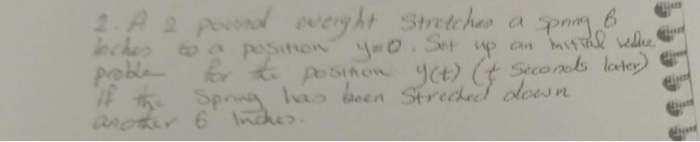 2. A 2 pound weight stretches a spring 6
inches to a position y=0. Set up an initial value
problem for the position y(t) (t seconds later)
if the spring has been streched down
another 6 inches.